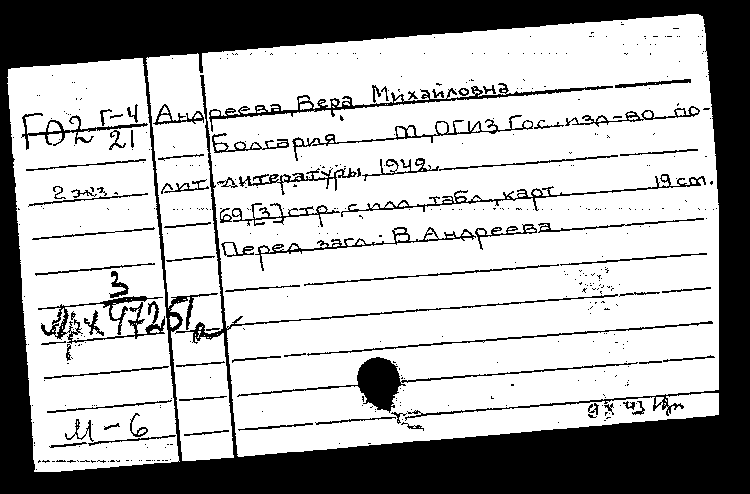 Г02 Г-4/21
Андреева, Вера Михайловна.
Болгария М., ОГИЗ Гос. изд-во по-
лит. литературы, 1942.
2 экз.
69,[3] стр., с илл., табл., карт. 19 cm.
Перед загл.: В. Андреева
Арх 3/47251
М-6